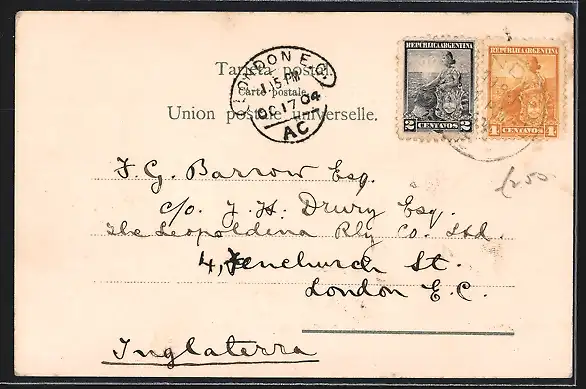 REPUBLICA ARGENTINA
2 CENTAVOS 2
REPUBLICA ARGENTINA
4 CENTAVOS 4
Tarjeta postal.
Carte postale.
Union postale universelle.
LONDON E.C.
1.15 PM
OC 17 04
AC
£2.50
F. G. Barrow Esq.
c/o. J. H. Drury Esq.
The Leopoldina Rly Co. Ltd.
4, Fenchurch St.
London E.C.
Inglaterra